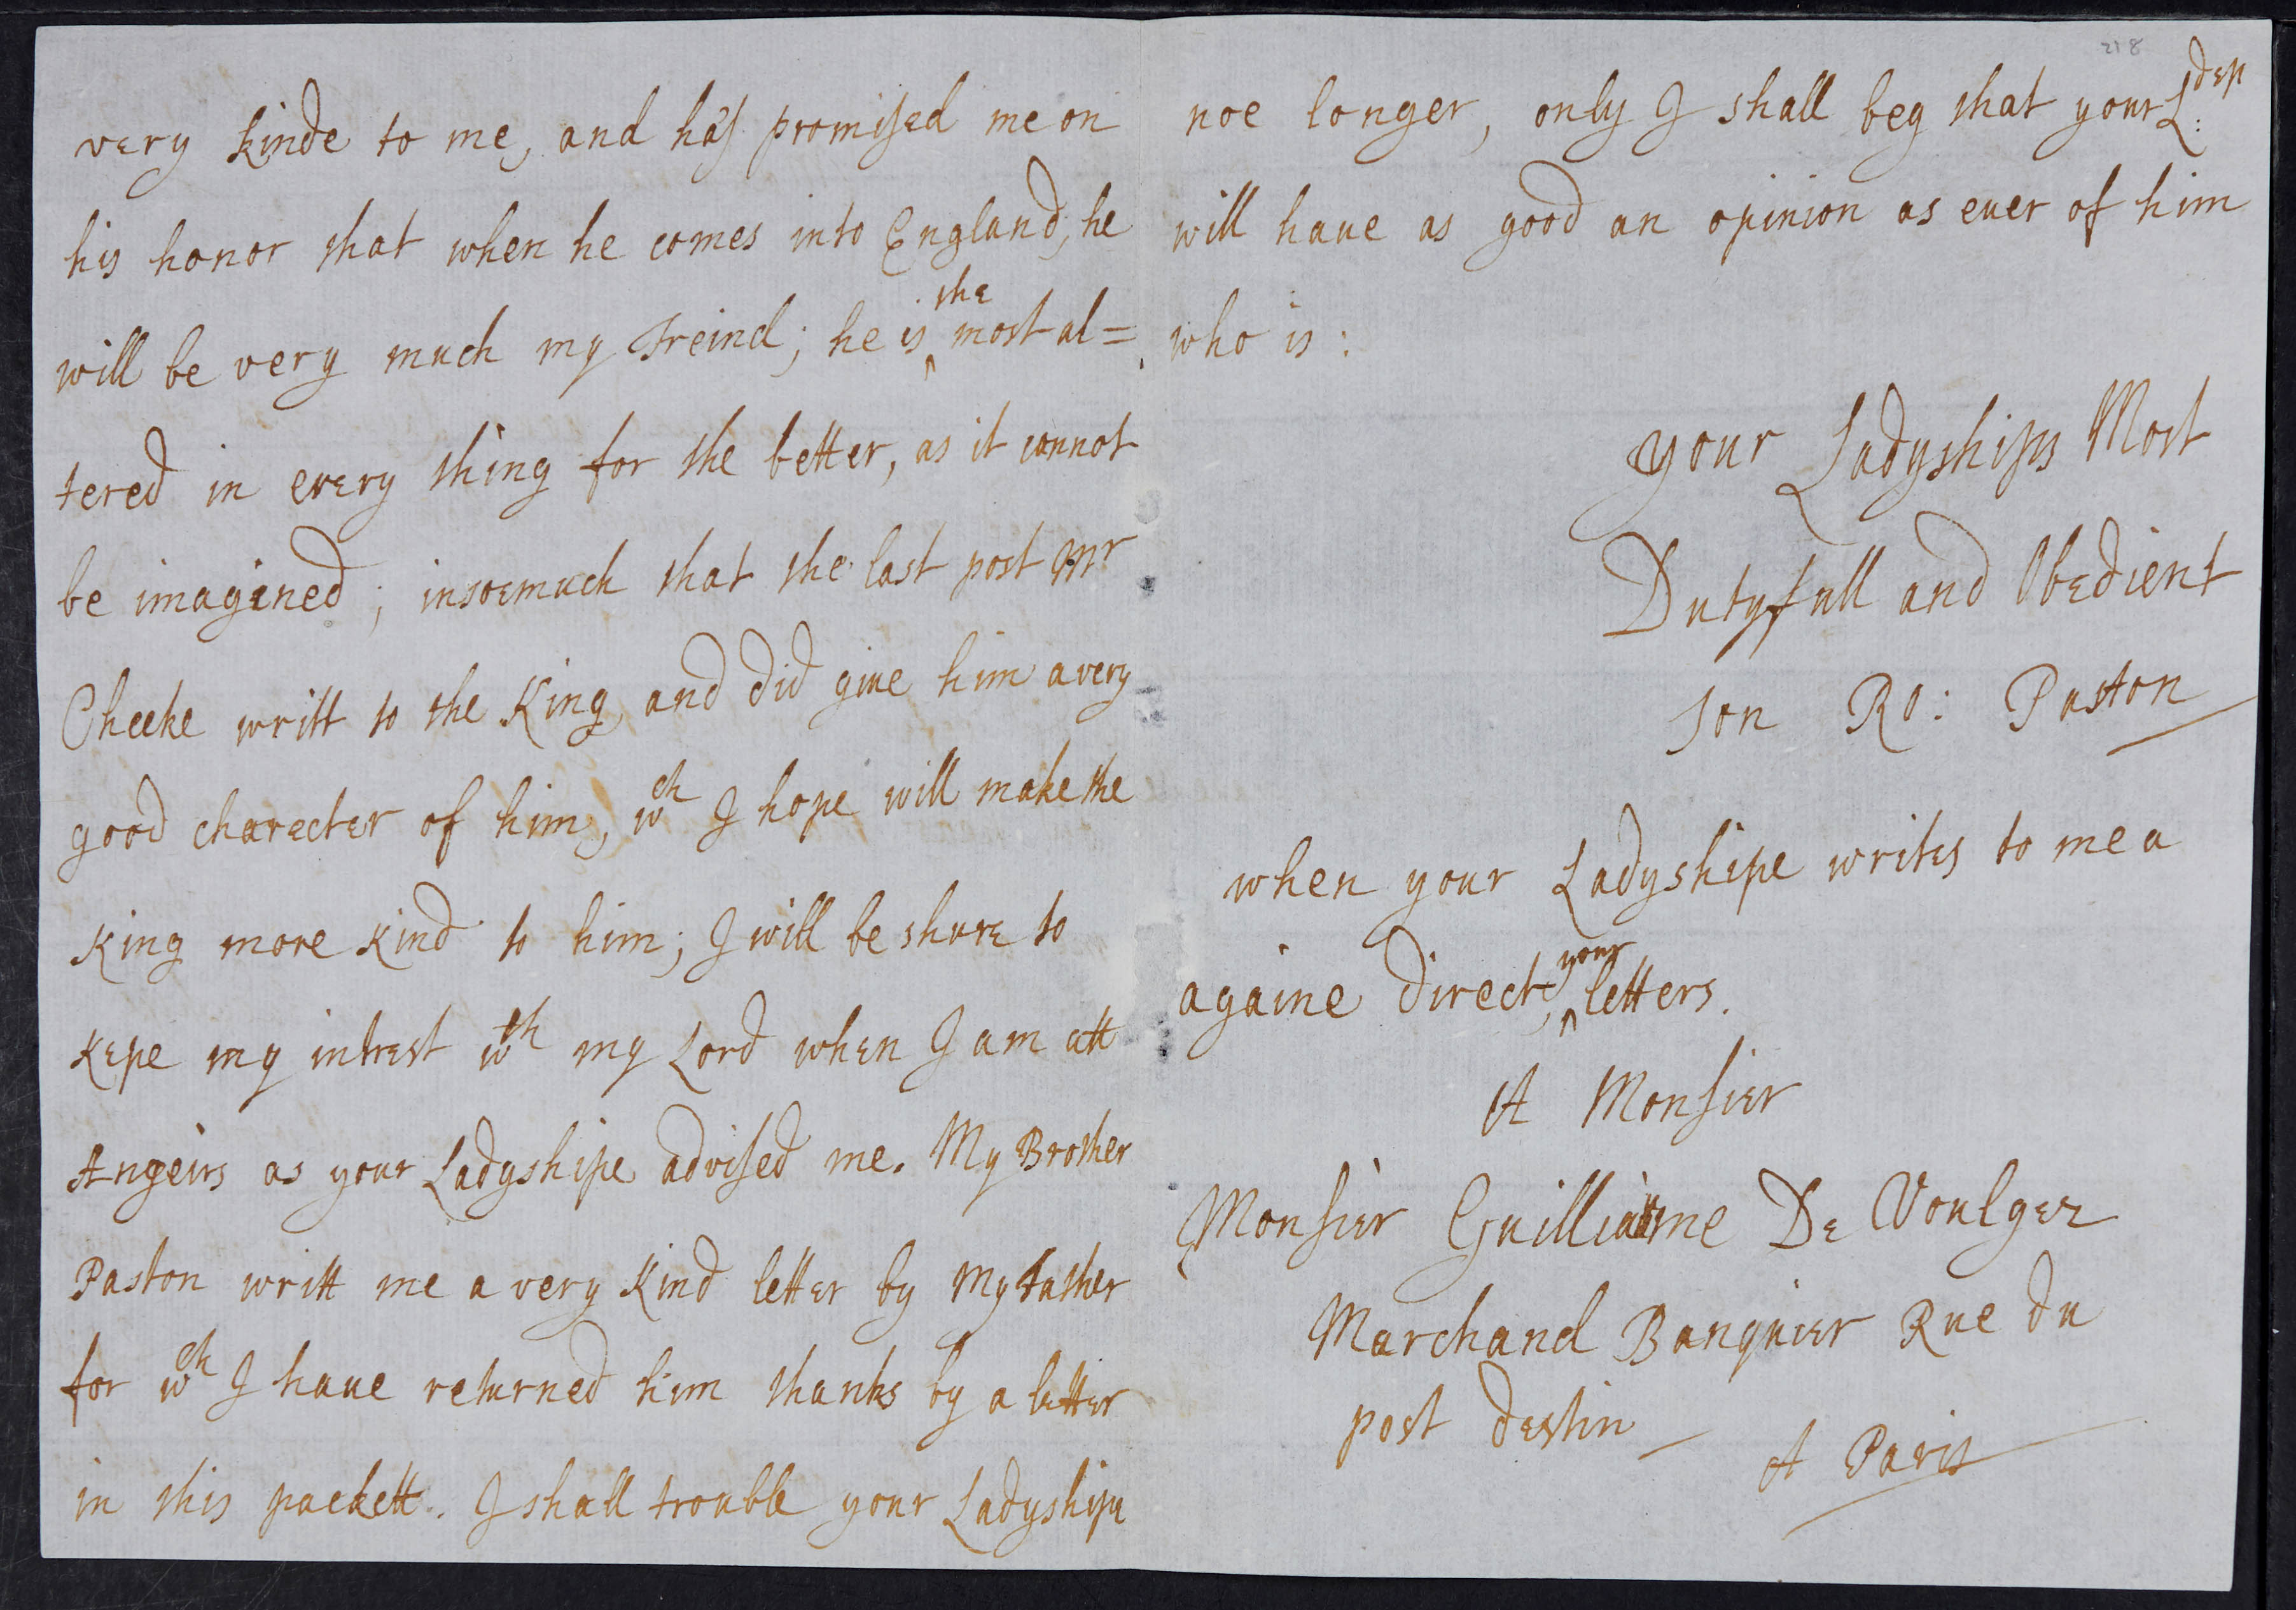 very kinde to me, and has promised me on
his honor that when he comes into England, he
will be very much my Freind; he is ^the most al=
tered in every thing for the better, as it cannot
be imagined; insoemuch that the last post Mr
Cheeke writt to the King, and did giue him a very
good charecter of him, wch I hope will make the
King more kind to him; I will be shure to
kepe my intrest wth my Lord when I am att
Angeirs as your Ladyshipe advised me. My Brother
Paston writt me a very kind letter by my father
for wch I haue returned him thanks by a letter
in this packett. I shall trouble your Ladyshipe
218
noe longer, only I shall beg that your Ldsp:
will haue as good an opinion as euer of him
who is:
your Ladyships Most
Dutyfull and Obedient
son Ro: Paston
when your Ladyshipe writes to me
againe direct, ^your letters.
A Monsier
Monsier Guilliaume De Voulger
Marchand Banquier Rue du
post destin
A Paris